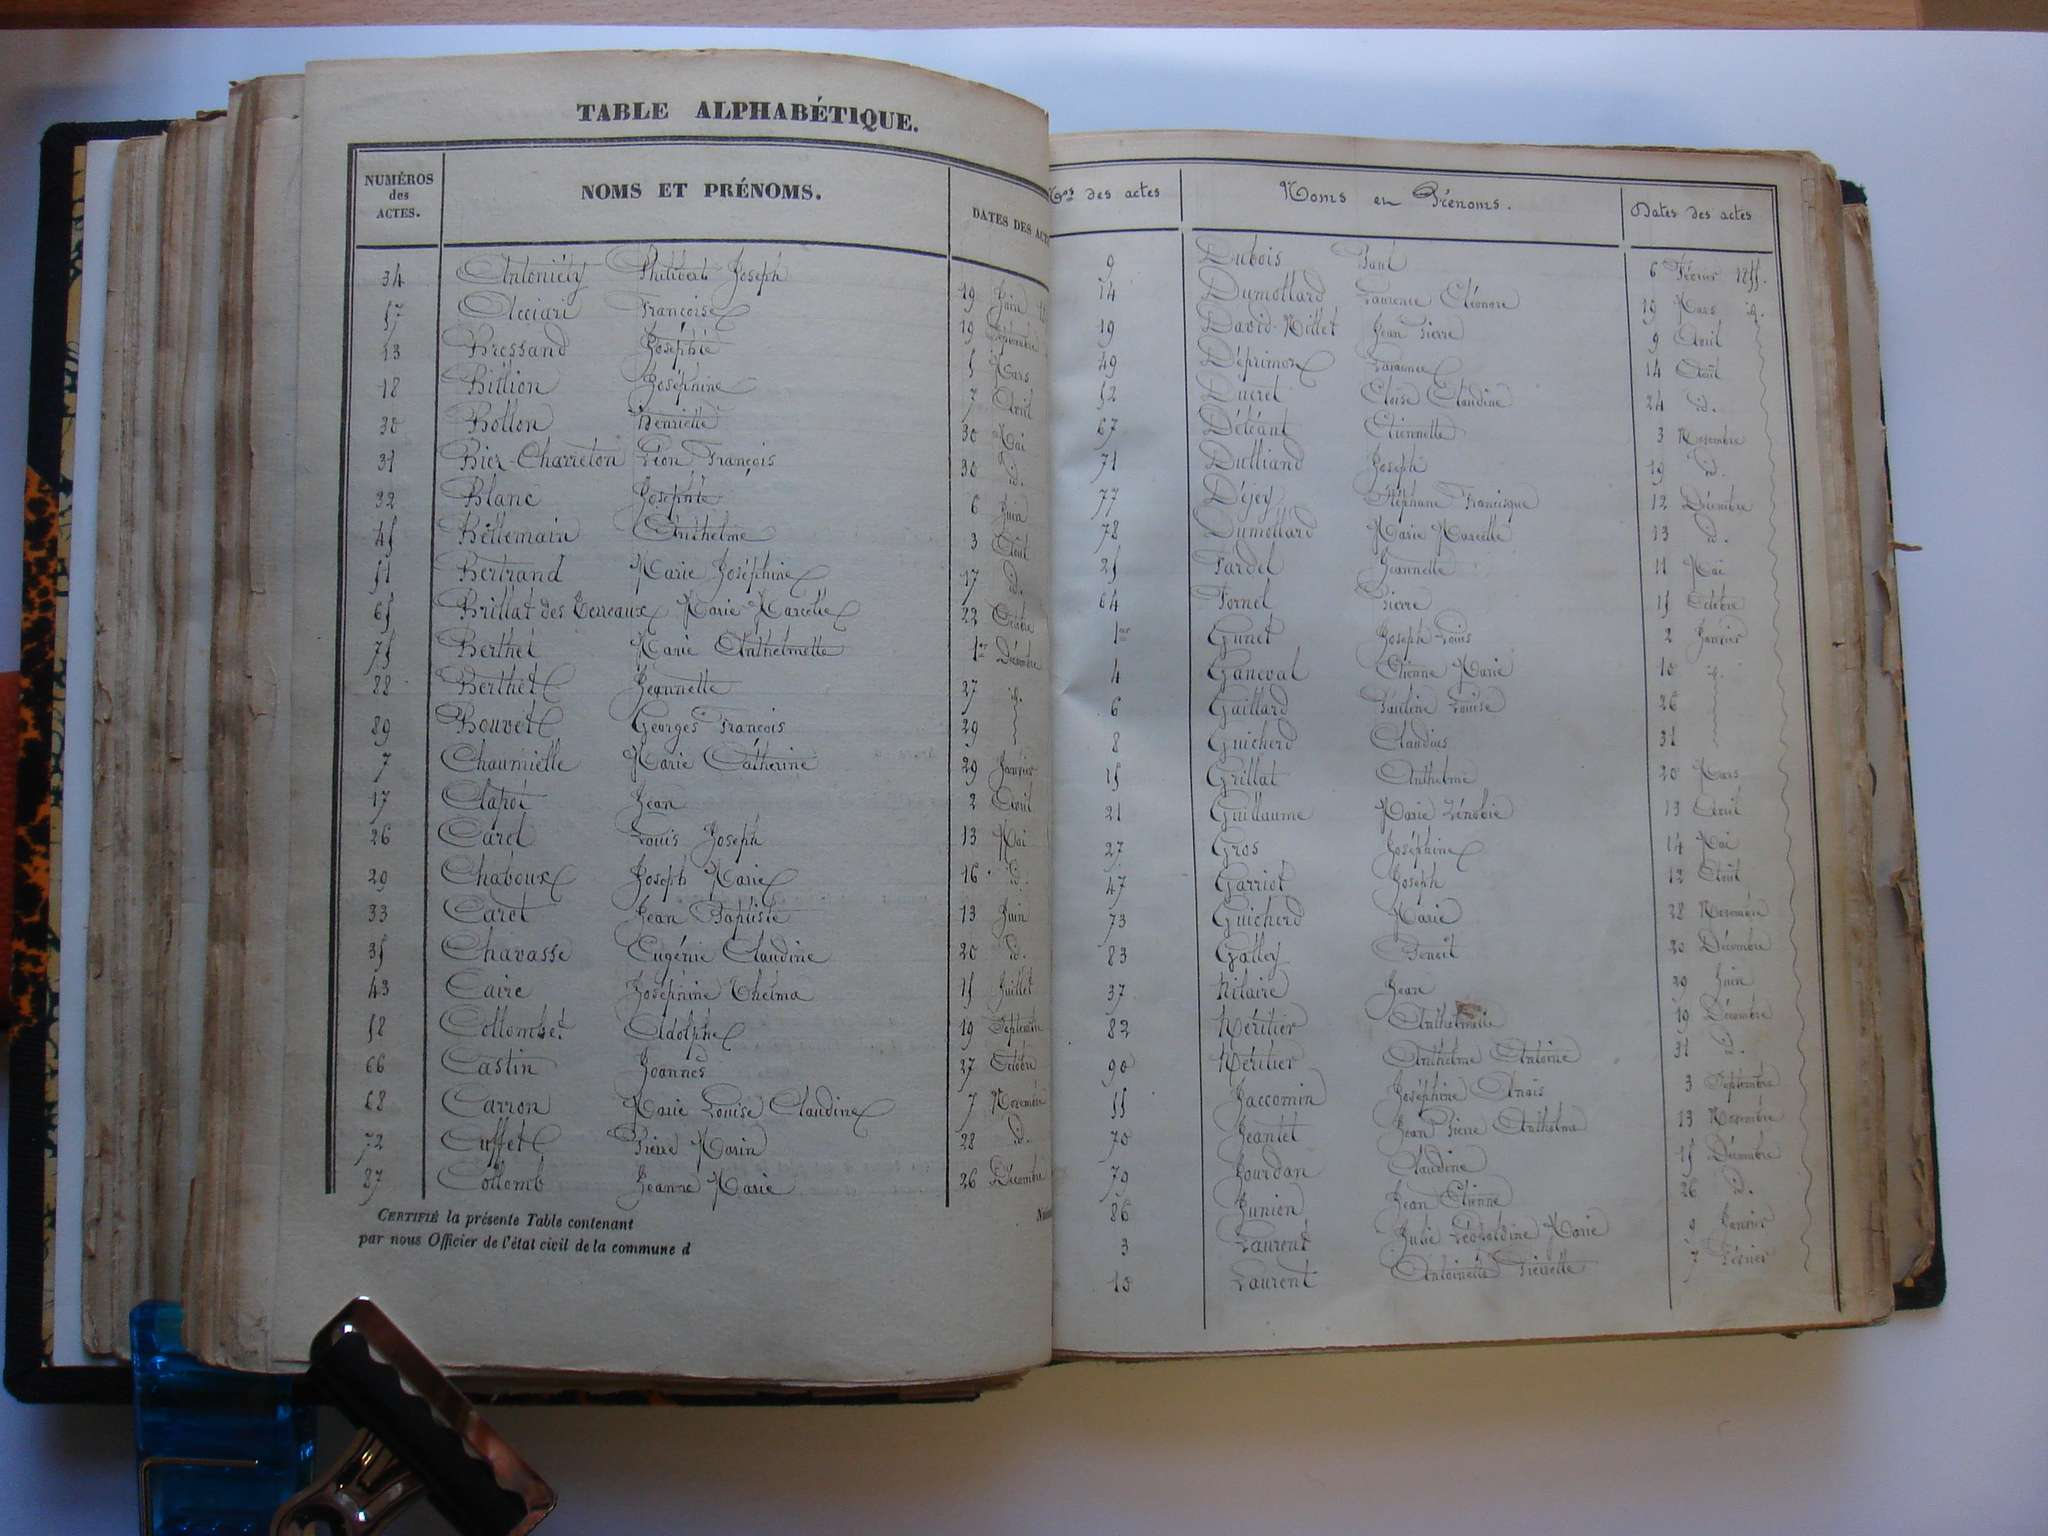 TABLE ALPHABÉTIQUE.
NUMÉROS des ACTES. NOMS ET PRÉNOMS. DATES DES ACT
34 Antoniéty Philibert Joseph 19 Juin
57 Acciari Françoise 19 Septembre
13 Bressand Josephte 5 Mars
18 Billion Joséphine 7 Avril
30 Bollon Henriette 30 Mai
31 Bier-Charreton Léon François 30 id.
32 Blanc Josephte 6 Juin
45 Bellemain Anthelme 3 Août
51 Bertrand Marie Joséphine 17 id.
65 Brillat des Terreaux Marie Marcelle 22 Octobre
75 Berthet Marie Anthelmette 1er Décembre
88 Berthet Jeannette 27 id.
89 Bouvet Georges François 29
7 Chaumielle Marie Catherine 29 Janvier
17 Clapot Jean 2 Avril
26 Carel Louis Joseph 13 Mai
29 Chaboux Joseph Marie 16 id.
33 Caret Jean Baptiste 13 Juin
35 Chavasse Eugénie Claudine 20 id.
43 Caire Joséphine Thelma 15 Juillet
58 Collombet Adolphe 19 Septembre
66 Castin Joannes 27 Octobre
68 Carron Marie Louise Claudine 7 Novembre
72 Cuffet Pierre Marin 28 id.
87 Collomb Jeanne Marie 26 Décembre
CERTIFIÉ la présente Table contenant
par nous Officier de l'état civil de la commune d
Nos des actes Noms et Prénoms. Dates des actes
9 Dubois Paul 6 Février 1855.
14 Dumollard Laurence Eléonore 19 Mars id.
19 David-Nillet Jean Pierre 9 Avril
49 Déprimoz Laurence 14 Août
52 Ducret Eloise Claudine 24 id.
67 Détéant Etiennette 3 Novembre
71 Dulliand Joseph 19 id.
77 Déjey Stéphane Francisque 12 Décembre
78 Dumollard Marie Marcelle 13 id.
25 Fardel Jeannette 11 Mai
64 Fornel Pierre 15 Octobre
1er Gunet Joseph Louis 2 Janvier
4 Ganeval Etienne Marie 10 id.
6 Gaillard Pauline Louise 26
8 Guicherd Claudius 31
15 Grillat Anthelme 20 Mars
21 Guillaume Marie Zénobie 13 Avril
27 Gros Joséphine 14 Mai
47 Garriot Joseph 12 Août
73 Guicherd Marie 28 Novembre
83 Galley Benoit 20 Décembre
37 Hilaire Jean 29 Juin
82 Héritier Anthelmette 19 Décembre
90 Héritier Anthelme Antoine 31 id.
55 Jaccomin Joséphine Anais 3 Septembre
70 Jeantet Jean Pierre Anthelme 13 Novembre
79 Jourdan Claudine 15 Décembre
86 Junien Jean Etienne 26 id.
3 Laurent Julie Léopoldine Marie 9 Janvier
10 Laurent Antoinette Pierrette 7 Février